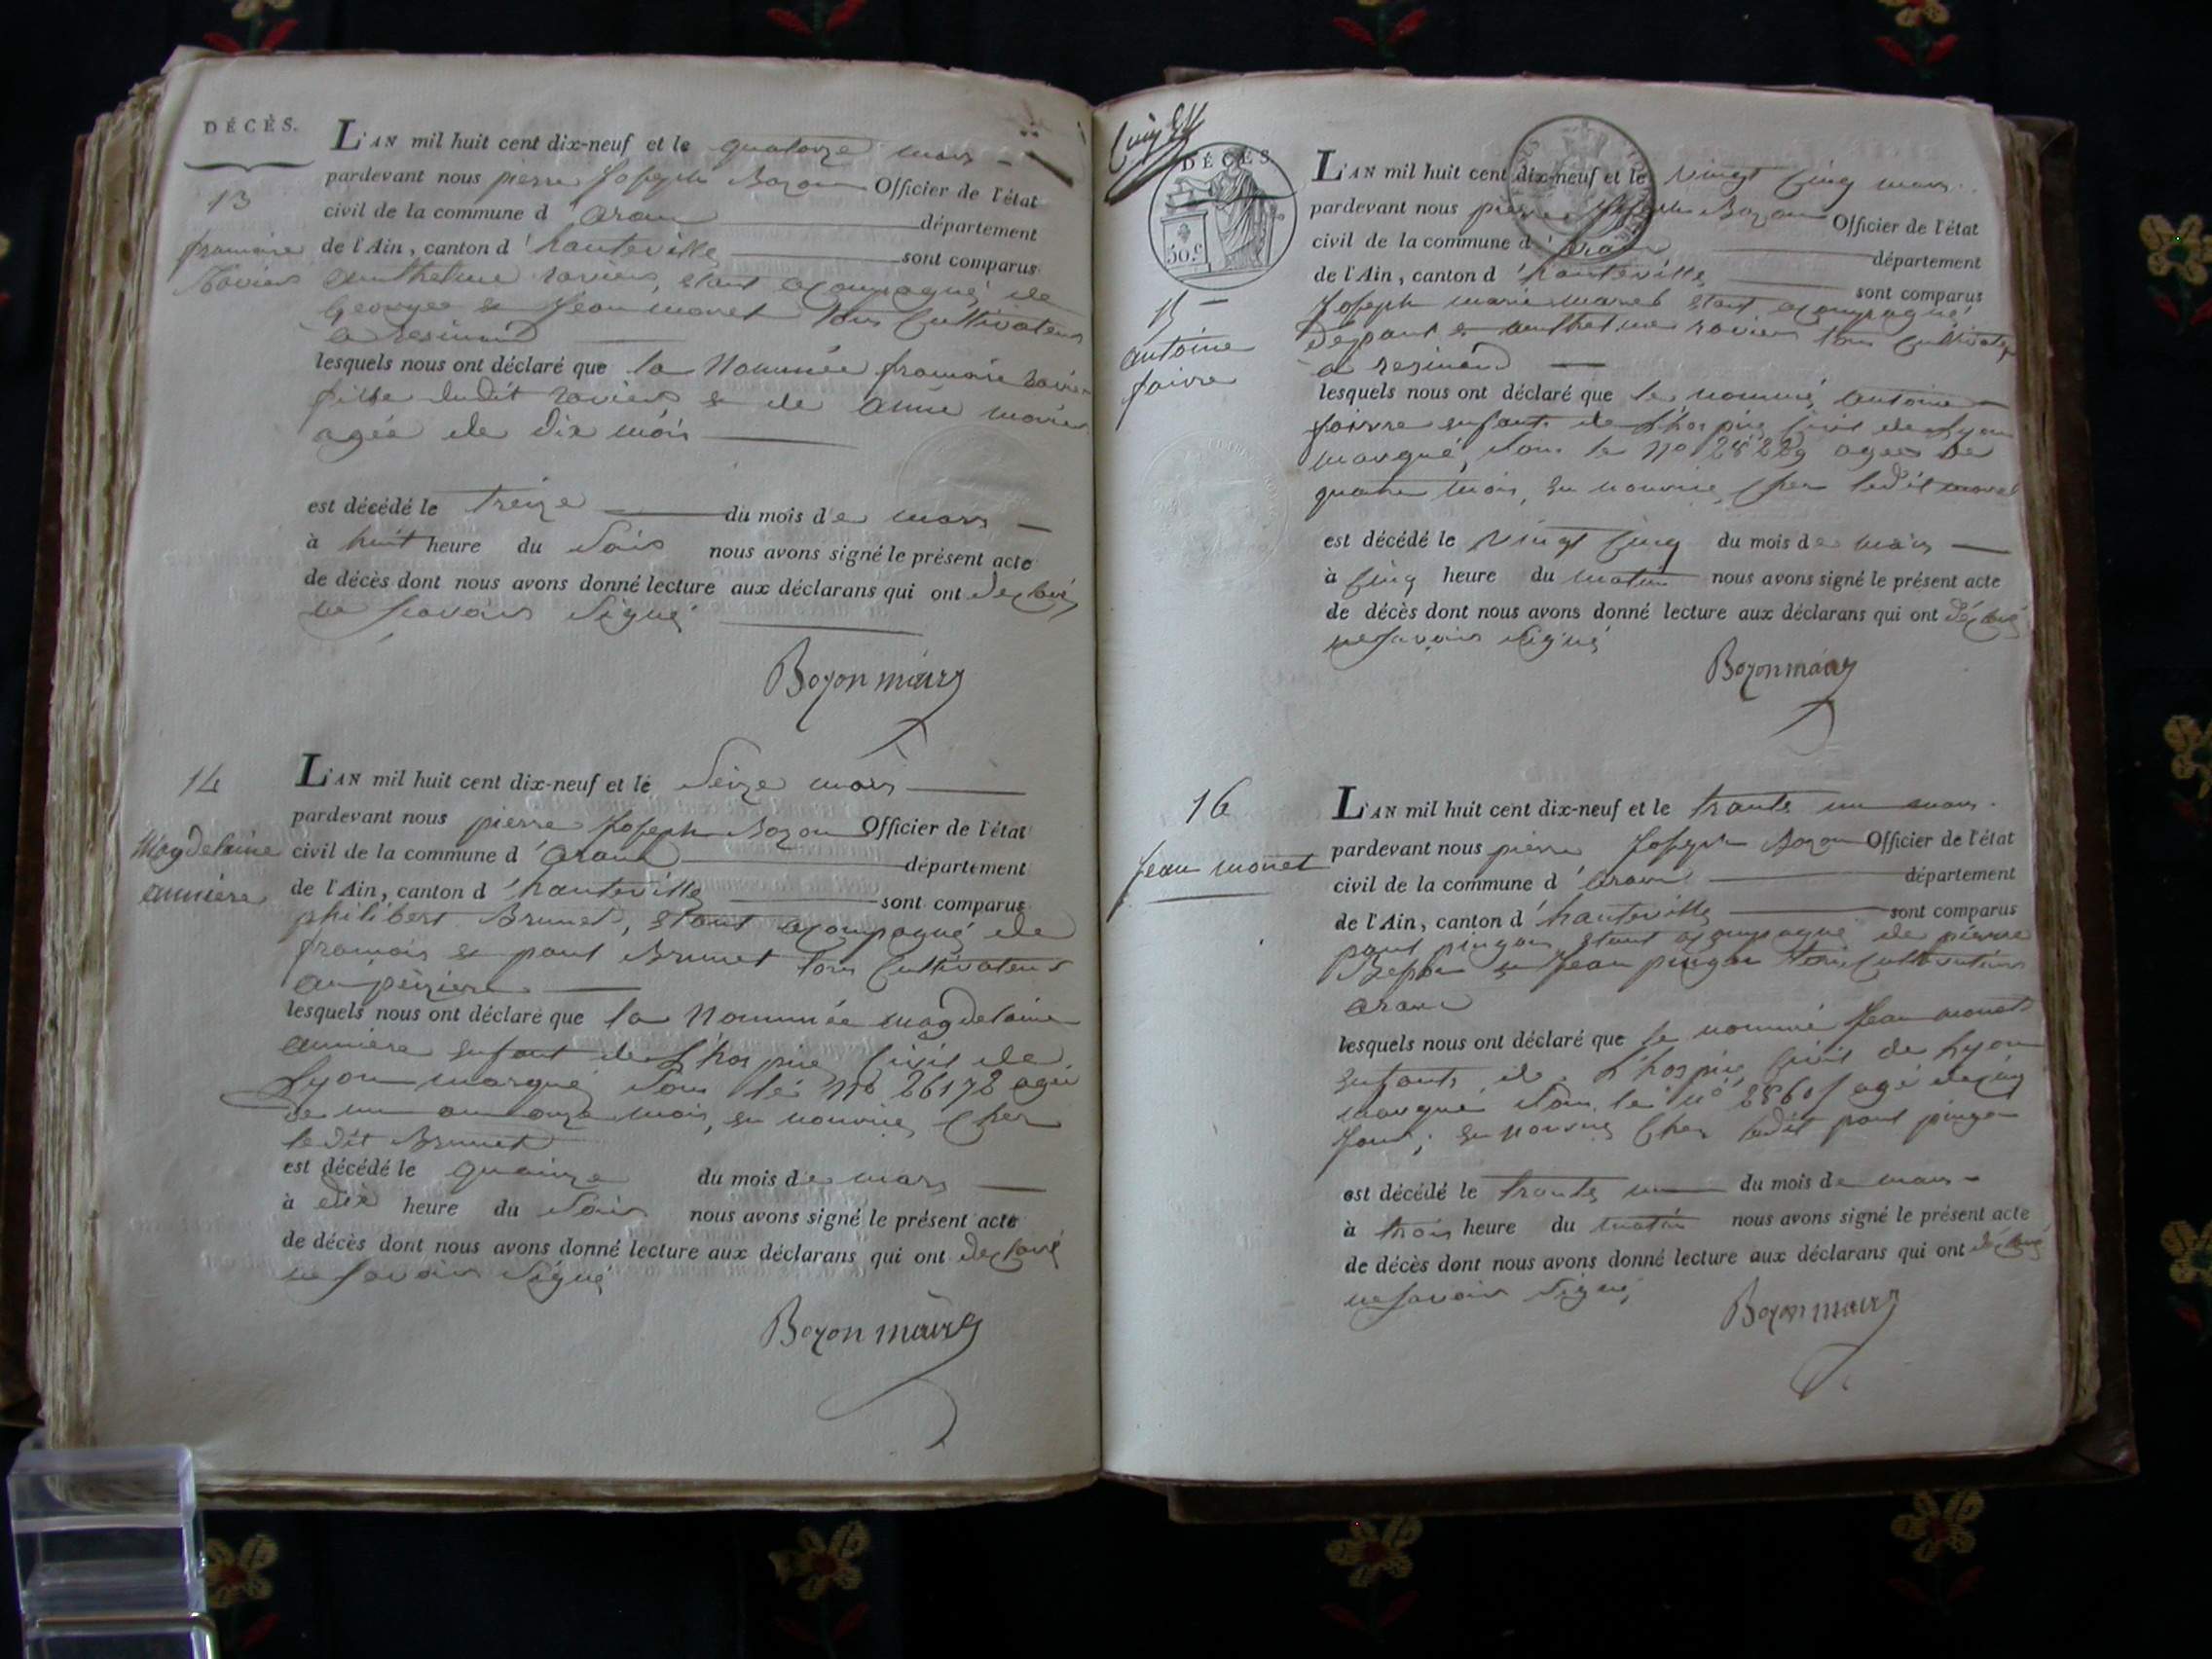 DÉCÈS.
L'AN mil huit cent dix-neuf et le quatorze mars
pardevant nous pierre Joseph Bozon Officier de l'état
civil de la commune d'aran département
13
de l'Ain, canton d'hauteville sont comparus
anthelme ravier, etant acompagné de
George & Jean monet tous Cultivateurs
a resinand
lesquels nous ont déclaré que la Nommée
fille dudit ravier & de anne
agée de dix mois
est décédé le treize du mois de mars
à huit heure du soir nous avons signé le présent acte
de décès dont nous avons donné lecture aux déclarans qui ont déclaré
ne scavoir signé
Bozon maire
14
Magdelaine
anniere
L'AN mil huit cent dix-neuf et le seize mars
pardevant nous pierre Joseph Bozon Officier de l'état
civil de la commune d'aran département
de l'Ain, canton d'hauteville sont comparus
philibert Brunet, etant acompagné de
francois & paul Brunet tous Cultivateurs
lesquels nous ont déclaré que la Nommée magdelaine
anniere enfant de L'hospice Civil de
Lyon marqué sous le no 26172 agée
de un an onze mois, en nourrice Chez
ledit Brunet
est décédé le quainze du mois de mars
à dix heure du soir nous avons signé le présent acte
de décès dont nous avons donné lecture aux déclarans qui ont déclaré
ne savoir signé
Bozon maire
DÉCÈS
50 c
L'AN mil huit cent dix-neuf et le vingt Cinq mars
pardevant nous pierre Joseph Bozon Officier de l'état
civil de la commune d'aran département
de l'Ain, canton d'hauteville sont comparus
15
antoine
faivre
Joseph marie etant acompagné
& anthelme ravier tous Cultivateurs
a resinand
lesquels nous ont déclaré que le nommé antoine
faivre enfant de L'hospice Civil de Lyon
marqué, sous le no 28229 agée de
quatre mois, en nourrice Chez ledit
est décédé le vingt Cinq du mois de mars
à Cinq heure du matin nous avons signé le présent acte
de décès dont nous avons donné lecture aux déclarans qui ont déclaré
ne savoir signé
Bozon maire
16
Jean monet
L'AN mil huit cent dix-neuf et le trante un mars
pardevant nous pierre Joseph Bozon Officier de l'état
civil de la commune d'aran département
de l'Ain, canton d'hauteville sont comparus
paul pingon etant acompagné de pierre
& Jean pingon tous Cultivateurs
aran
lesquels nous ont déclaré que le nommé Jean monet
enfant de L'hospice Civil de Lyon
marqué sous le no agé de
Jour, en nourrice Chez ledit paul pingon
est décédé le trante un du mois de mars
à trois heure du matin nous avons signé le présent acte
de décès dont nous avons donné lecture aux déclarans qui ont déclaré
ne savoir signé
Bozon maire